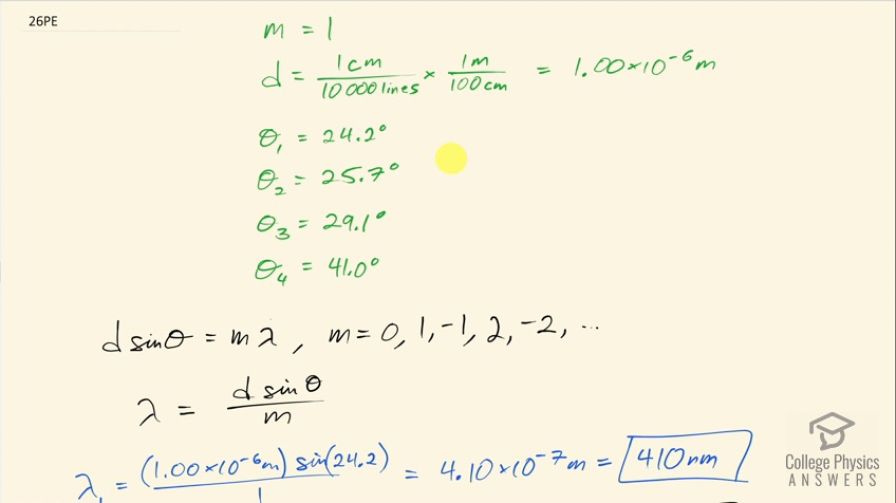 26PE
m = 1
d = 1cm / 10 000 lines × 1m / 100cm = 1.00×10⁻⁶ m
θ₁ = 24.2°
θ₂ = 25.7°
θ₃ = 29.1°
θ₄ = 41.0°
d sinθ = mλ, m = 0, 1, -1, 2, -2, ...
λ = d sinθ / m
λ₁ = (1.00×10⁻⁶m) sin(24.2) / 1 = 4.10×10⁻⁷m = 410nm
College Physics
ANSWERS